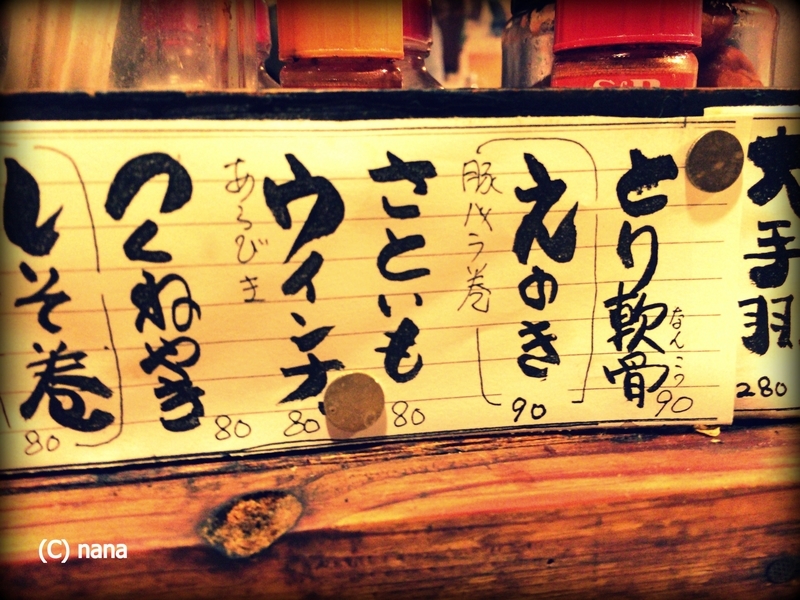 S&B
大手羽
280
とり軟骨
なんこつ
90
えのき
豚バラ巻
90
さといも
80
ウインナ
あらびき
80
つくねやき
80
しそ巻
80
(C) nana